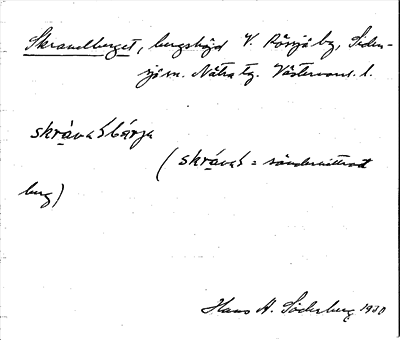 Skravelberget, bergshöjd V. Rössjö by, Siden-
sjö sn. Nätra tg. Västernorrl. l.
skràvaƨbárja
(skràvaƨ = söndervittrat
berg)
Hans A. Söderberg 1930